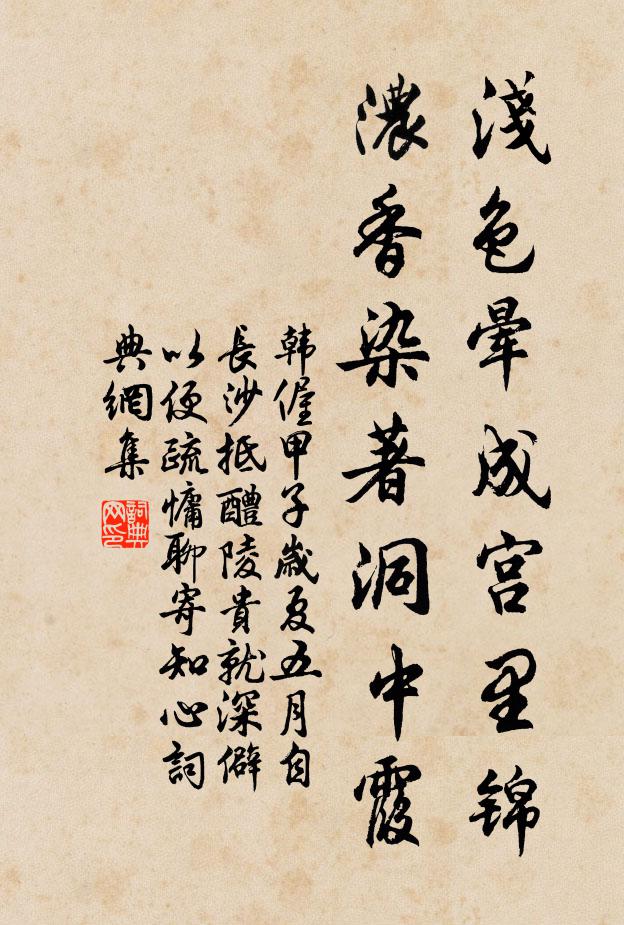 淺色暈成宫里锦
濃香染著洞中霞
韩偓甲子歲夏五月自
長沙抵醴陵貴就深僻
以便疏慵聊寄知心詞
典網集
詞典网印